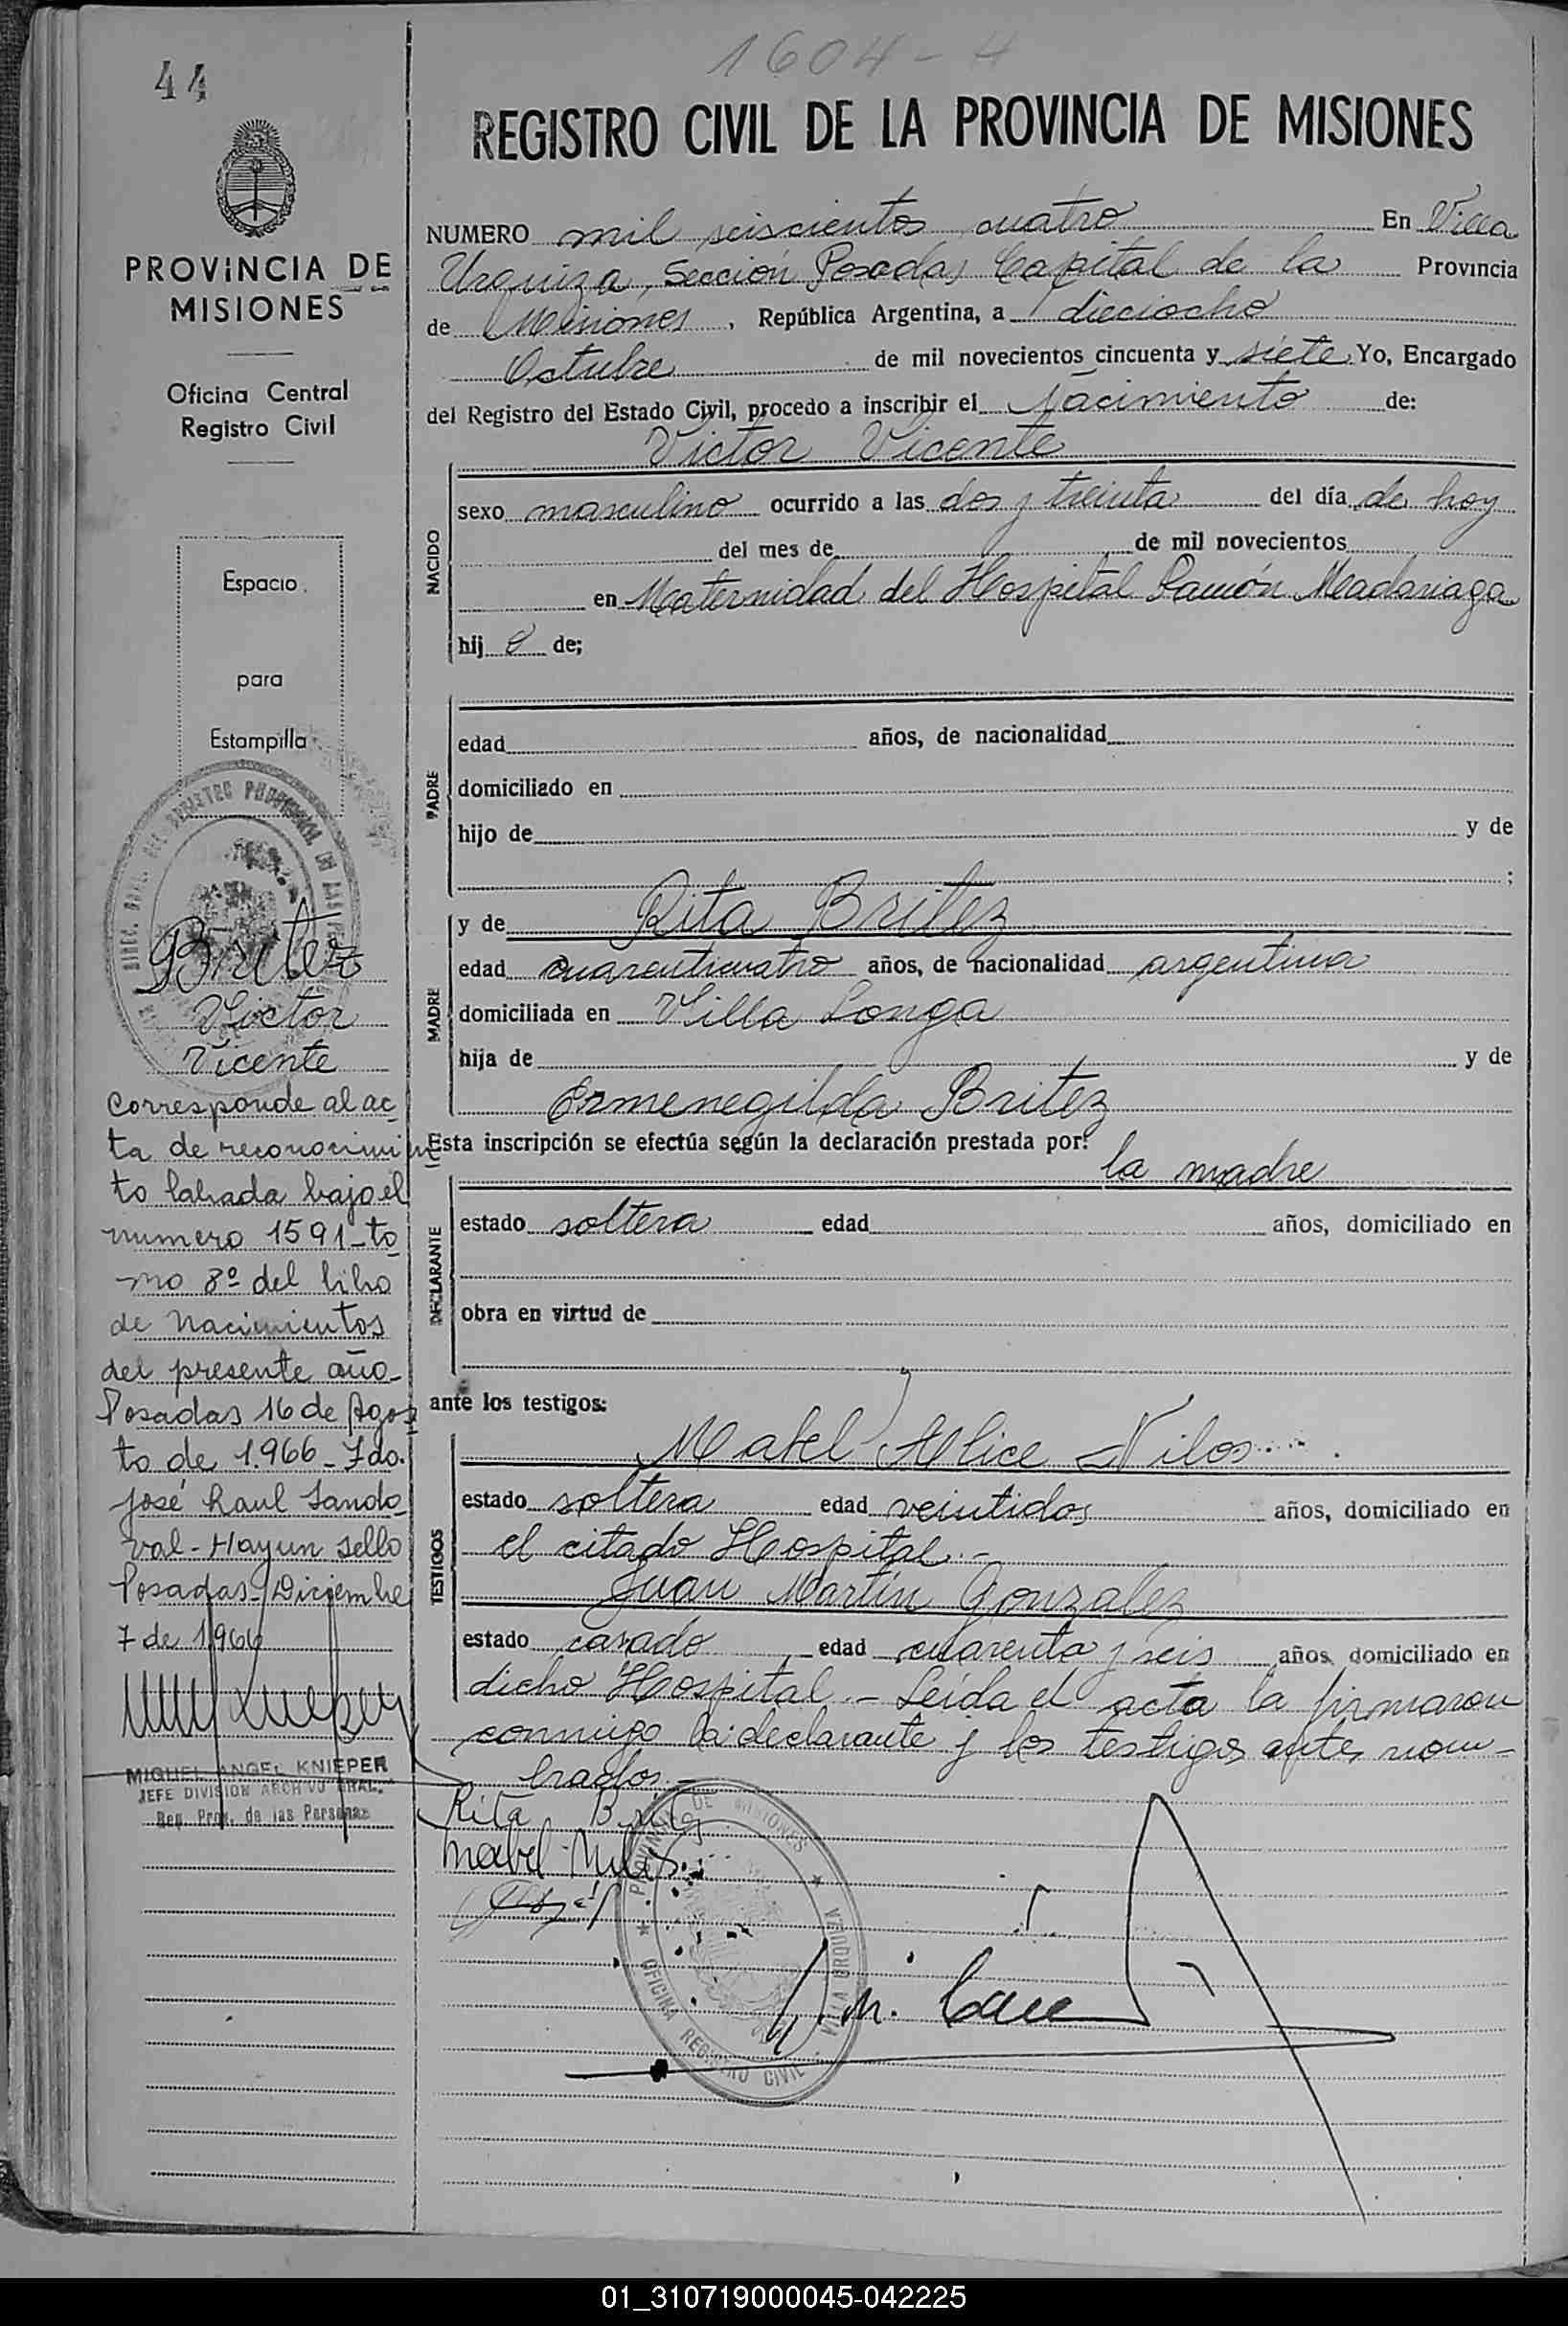 44
PROVINCIA DE
MISIONES
Oficina Central
Registro Civil
Espacio
para
Estampilla
Britez
Victor
Vicente
Corresponde al ac
ta de reconocimien
to labrada bajo el
numero 1591-to
mo 8º del libro
de Nacimientos
del presente año-
Posadas 16 de Agos
to de 1.966-Fdo.
José Raul Sando
val-Hay un sello
Posadas-Diciembre
7 de 1966
MIGUEL ANGEL KNIEPER
JEFE DIVISION ARCHIVO GRAL.
Reg. Prov. de las Personas
1604-4
REGISTRO CIVIL DE LA PROVINCIA DE MISIONES
NUMERO mil seiscientos cuatro En Villa
Urquiza, Sección Posadas, Capital de la Provincia
de Misiones, República Argentina, a dieciocho
Octubre de mil novecientos cincuenta y siete Yo, Encargado
del Registro del Estado Civil, procedo a inscribir el Nacimiento de:
Victor Vicente
NACIDO
sexo masculino ocurrido a las dos y treinta del día de hoy
del mes de de mil novecientos
en Maternidad del Hospital Ramón Madariaga
hij o de;
PADRE
edad años, de nacionalidad
domiciliado en
hijo de y de
;
MADRE
y de Rita Britez
edad cuarenticuatro años, de nacionalidad argentina
domiciliada en Villa Longa
hija de y de
Ermenegilda Britez
Esta inscripción se efectúa según la declaración prestada por:
la madre
DECLARANTE
estado soltera edad años, domiciliado en
obra en virtud de
ante los testigos:
TESTIGOS
Mabel Alice Nilos
estado soltera edad veintidos años, domiciliado en
el citado Hospital.-
Juan Martín Gonzalez
estado casado edad cuarenta y seis años domiciliado en
dicho Hospital.- Leída el acta la firmaron
conmigo la declarante y los testigos antes nom-
brados.-
Rita Britez
Mabel Nilos
PROVINCIA DE MISIONES
VILLA URQUIZA
OFICINA REGISTRO CIVIL
01_310719000045-042225